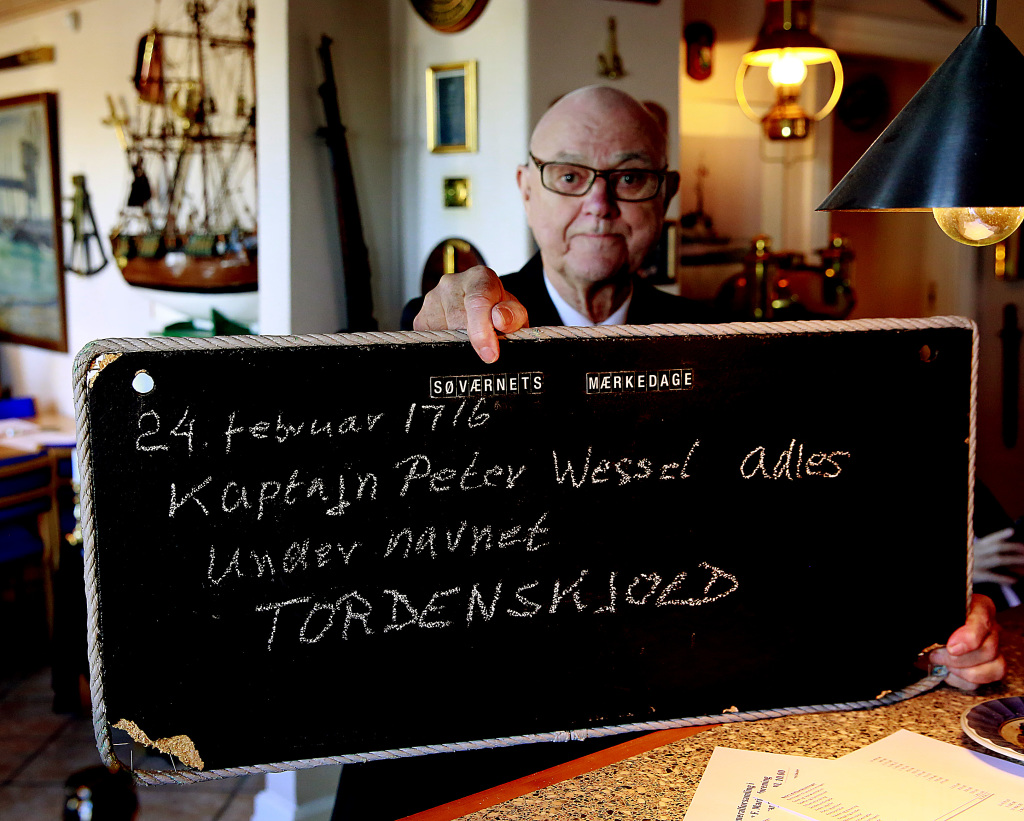 SØVÆRNETS MÆRKEDAGE
24. februar 1716
Kaptajn Peter Wessel adles
under navnet
TORDENSKJOLD